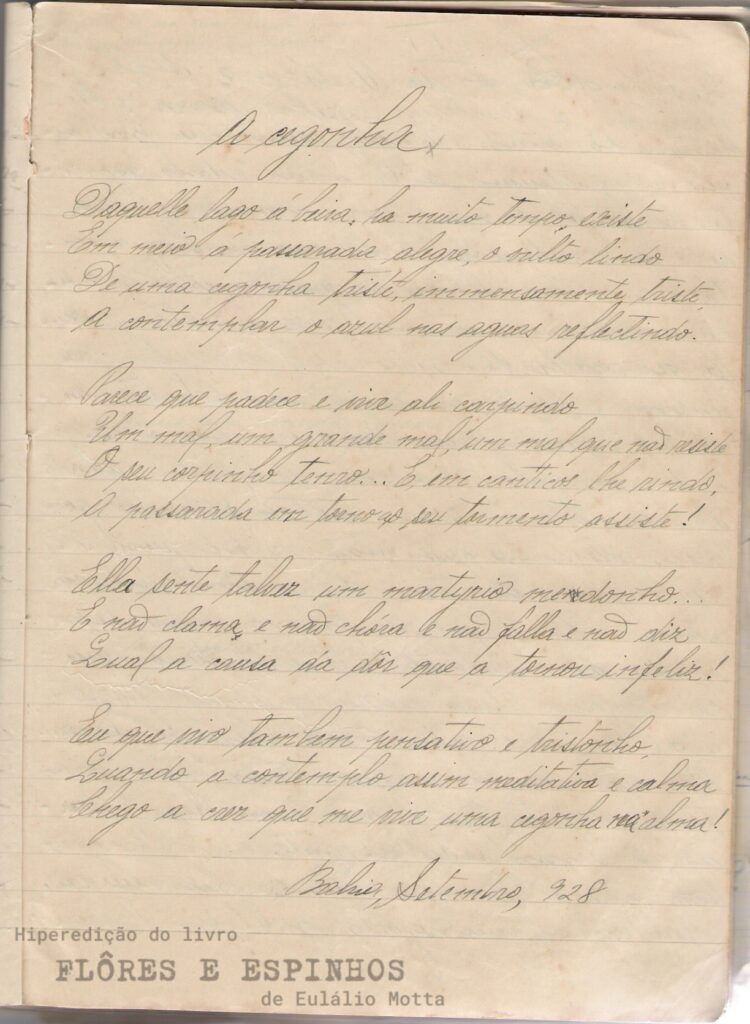 A cegonha x
Daquelle lago á beira, ha muito tempo, existe
Em meio á passarada alegre, o vulto lindo
De uma cegonha triste, immensamente triste,
A contemplar o azul nas aguas reflectindo.
Parece que padece e vive ali carpindo
Um mal, um grande mal, um mal que não resiste
O seu corpinho tenro... E, em canticos lhe rindo,
A passarada em torno ao seu tormento assiste!
Ella sente talvez um martyrio medonho...
E não clama, e não chora e não falla e não diz
Qual a causa da dôr que a tornou infeliz!
Eu que vivo tambem pensativo e tristonho,
Quando a contemplo assim meditativa e calma
Chego a crer que me vive uma cegonha na alma!
Bahia, Setembro, 928
Hiperedição do livro
FLÔRES E ESPINHOS
de Eulálio Motta